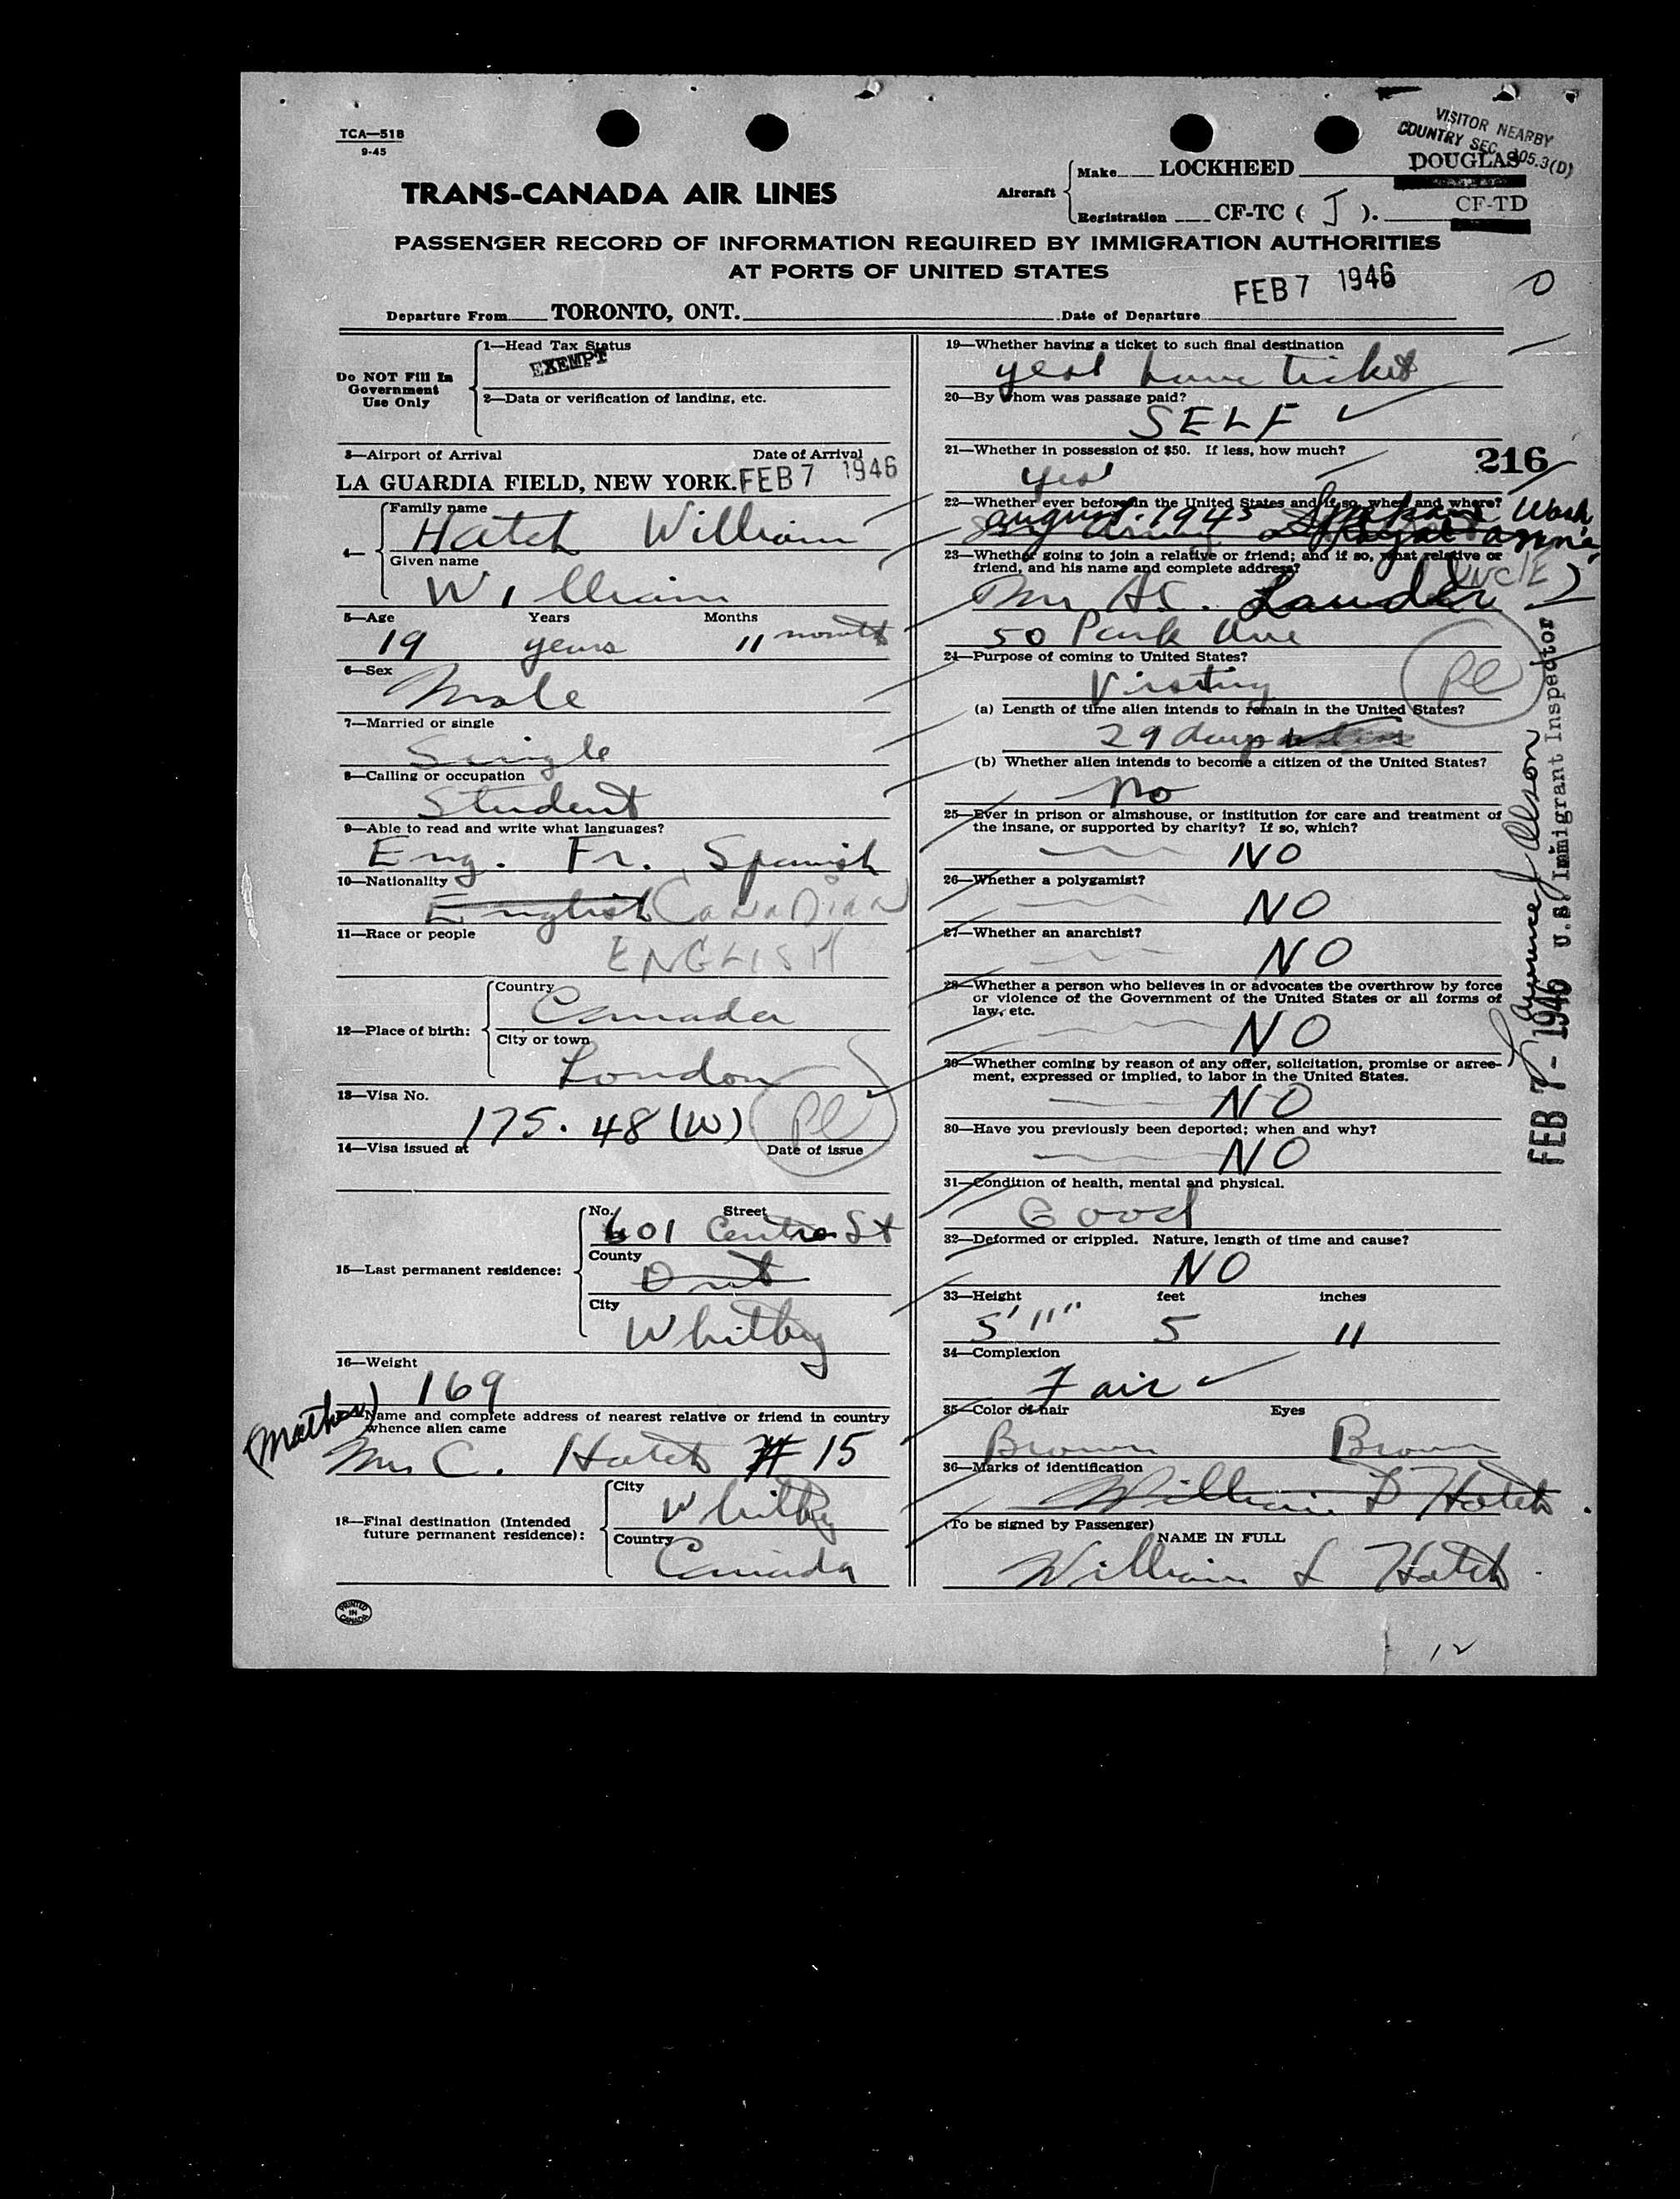 TCA—518
9-45
VISITOR NEARBY
COUNTRY SEC. 105.3(D)
TRANS-CANADA AIR LINES
Aircraft
Make LOCKHEED DOUGLAS
Registration CF-TC ( J ). CF-TD
PASSENGER RECORD OF INFORMATION REQUIRED BY IMMIGRATION AUTHORITIES
AT PORTS OF UNITED STATES
Departure From TORONTO, ONT. Date of Departure FEB 7 1946
Do NOT Fill In
Government
Use Only
1—Head Tax Status
EXEMPT
2—Data or verification of landing, etc.
3—Airport of Arrival Date of Arrival
LA GUARDIA FIELD, NEW YORK. FEB 7 1946
4—
Family name
Hatch William
Given name
William
5—Age Years Months
19 years 11 months
6—Sex
Male
7—Married or single
Single
8—Calling or occupation
Student
9—Able to read and write what languages?
Eng. Fr. Spanish
10—Nationality
English Canadian
11—Race or people
ENGLISH
12—Place of birth:
Country
Canada
City or town
London
13—Visa No.
175. 48 (W)
14—Visa issued at Date of issue
15—Last permanent residence:
No. Street
601 Centre St
County
Ont
City
Whitby
16—Weight
169
(Mother)
Name and complete address of nearest relative or friend in country
whence alien came
Mrs C. Hatch # 15
18—Final destination (Intended
future permanent residence):
City
Whitby
Country
Canada
PRINTED
IN
CANADA
19—Whether having a ticket to such final destination
yes have ticket
20—By whom was passage paid?
SELF
21—Whether in possession of $50. If less, how much?
yes
216
22—Whether ever before in the United States and if so, when and where?
August 1945 Spokane Wash.
23—Whether going to join a relative or friend; and if so, what relative or
friend, and his name and complete address?
UNCLE
Mr H.C. Lauder
50 Park Ave
24—Purpose of coming to United States?
Visiting
(a) Length of time alien intends to remain in the United States?
29 days
(b) Whether alien intends to become a citizen of the United States?
No
25—Ever in prison or almshouse, or institution for care and treatment of
the insane, or supported by charity? If so, which?
NO
26—Whether a polygamist?
NO
27—Whether an anarchist?
NO
28—Whether a person who believes in or advocates the overthrow by force
or violence of the Government of the United States or all forms of
law, etc.
NO
29—Whether coming by reason of any offer, solicitation, promise or agree-
ment, expressed or implied, to labor in the United States.
NO
30—Have you previously been deported; when and why?
NO
31—Condition of health, mental and physical.
Good
32—Deformed or crippled. Nature, length of time and cause?
NO
33—Height feet inches
5' 11" 5 11
34—Complexion
Fair
35—Color of hair Eyes
Brown Brown
36—Marks of identification
William L Hatch
(To be signed by Passenger)
NAME IN FULL
William L Hatch
FEB 7 - 1946 U.S. Immigrant Inspector
12